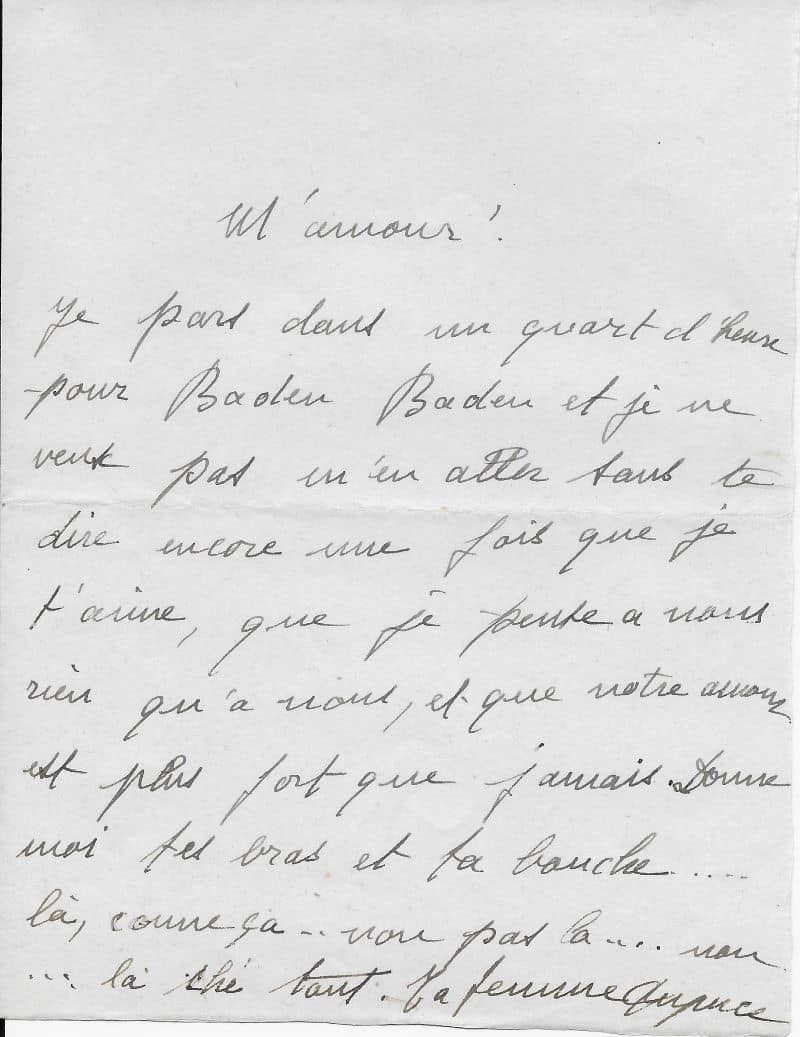 M'amour!
Je pars dans un quart d'heure
pour Baden Baden et je ne
veux pas m'en aller sans te
dire encore une fois que je
t'aime, que je pense a nous
rien qu'a nous, et que notre amour
est plus fort que jamais. Donne
moi tes bras et ta bouche.....
là, comme ça.. non pas la.... non
... là tant. Ta femme